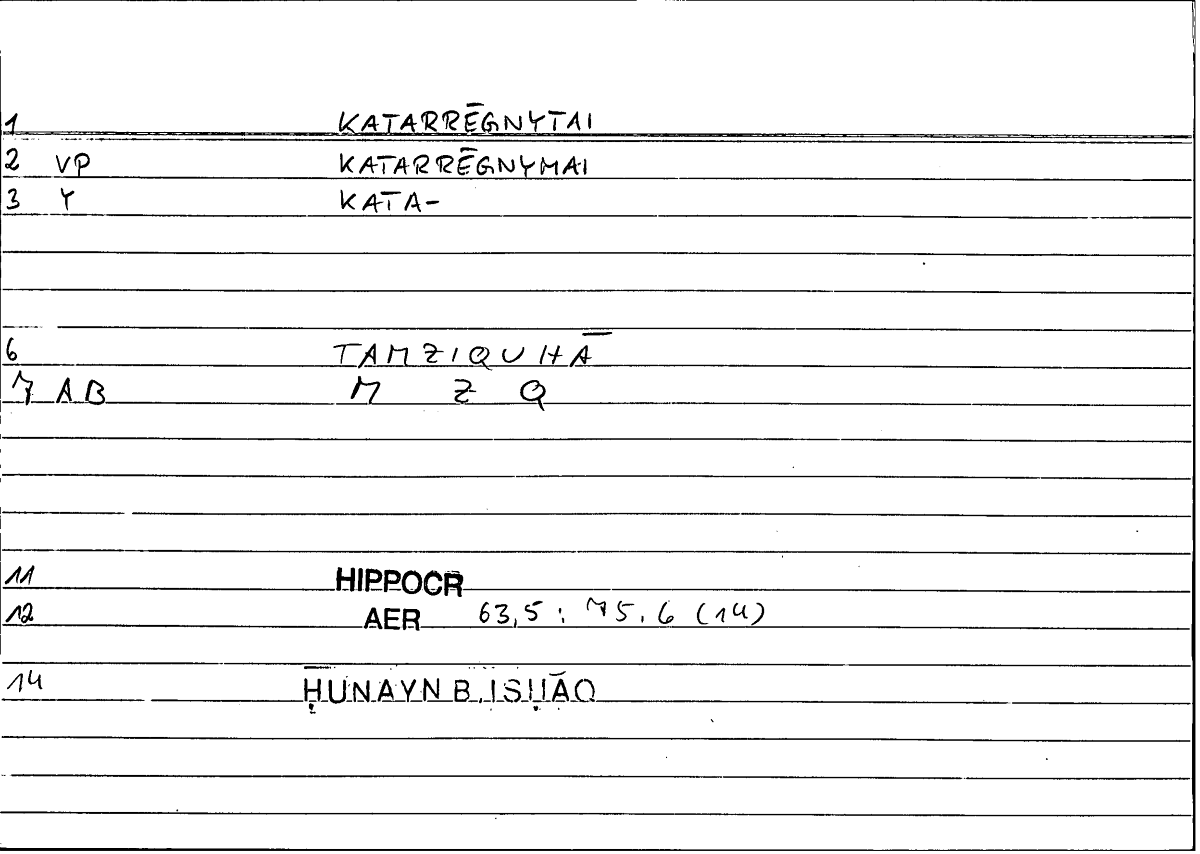 1 KATARRĒGNYTAI
2 VP KATARRĒGNYMAI
3 Y KATA-
6 TAMZIQUHĀ
7 AB M Z Q
11 HIPPOCR
12 AER 63,5 : 75.6 (14)
14 ḤUNAYN B. ISḤĀQ